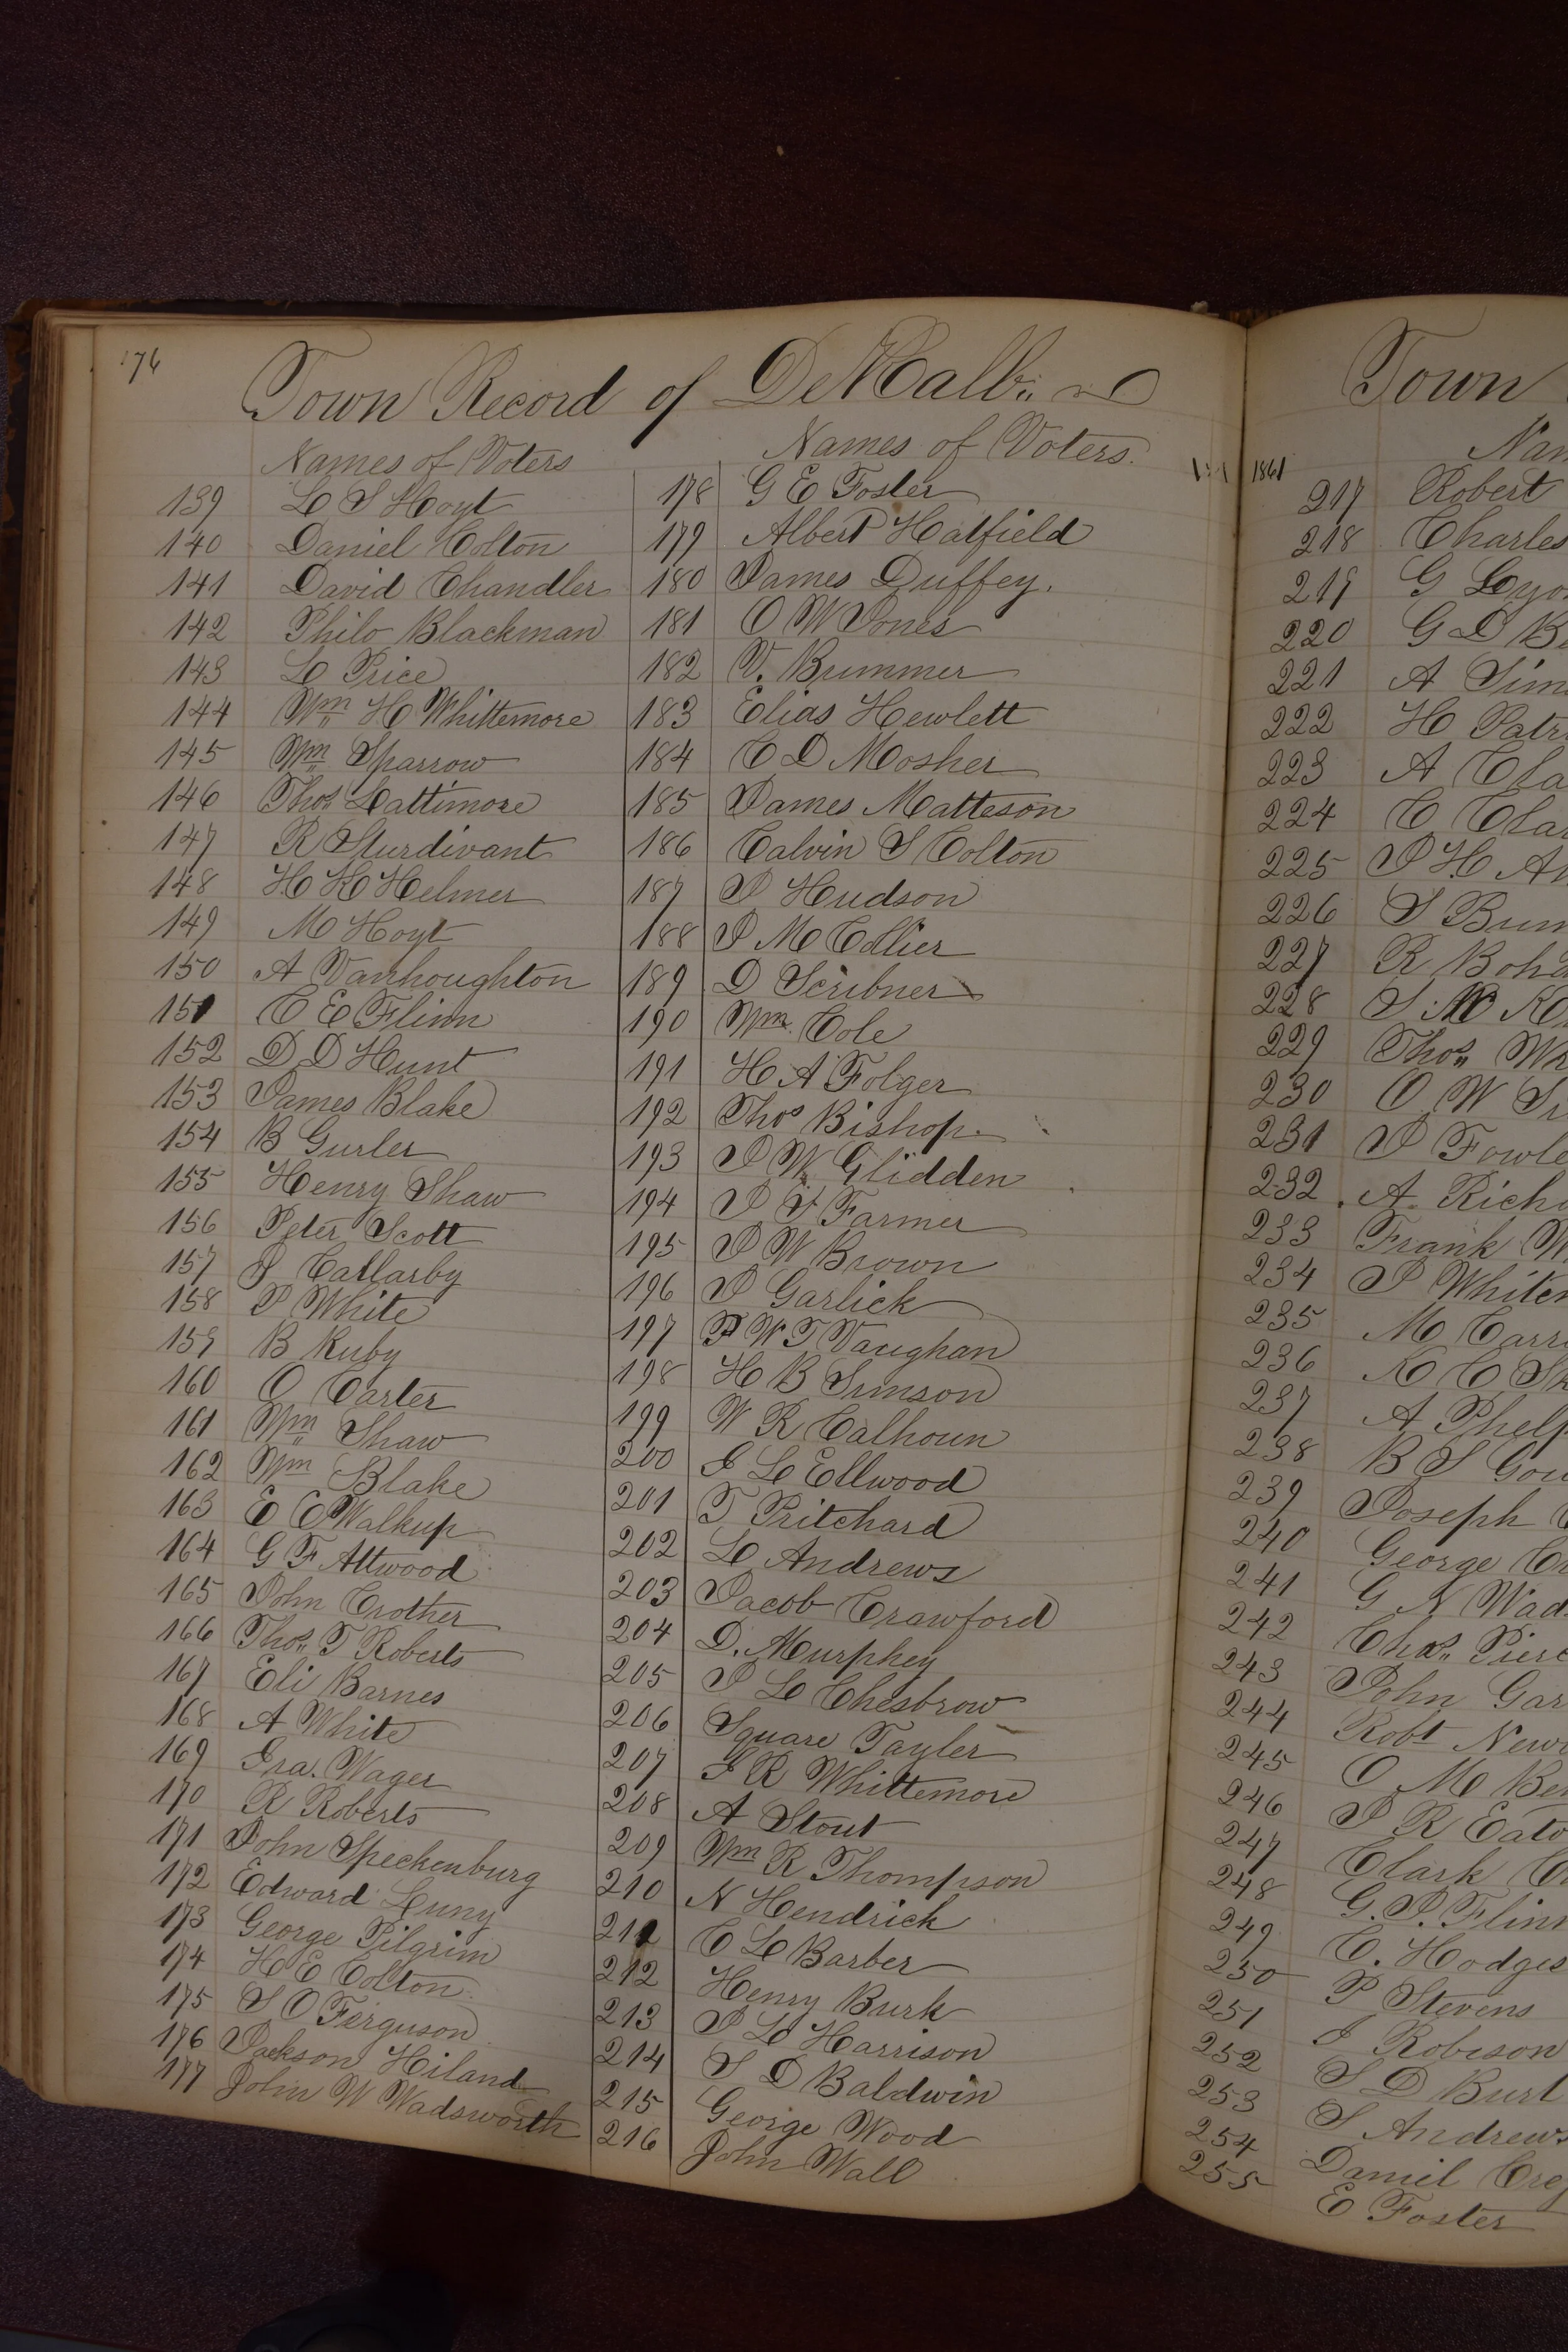 176
Town Record of DeKalb
Names of Voters
139 L S Hoyt
140 Daniel Colton
141 David Chandler
142 Philo Blackman
143 L Price
144 Wm H Whittemore
145 Wm Sparrow
146 Thos Lattimore
147 R Sturdivant
148 H H Helmer
149 M Hoyt
150 A Vanhoughton
151 C E Flinn
152 D D Hunt
153 James Blake
154 B Gurler
155 Henry Shaw
156 Peter Scott
157 J Callarby
158 P White
159 B Ruby
160 O Carter
161 Wm Shaw
162 Wm Blake
163 E E Walkup
164 G F Attwood
165 John Crother
166 Thos T Roberts
167 Eli Barnes
168 A White
169 Ira. Wager
170 R Roberts
171 John Speckenburg
172 Edward Luny
173 George Pilgrim
174 H E Colton
175 S O Ferguson
176 Jackson Hiland
177 John W Wadsworth
Names of Voters.
178 G E Foster
179 Albert Hatfield
180 James Duffey.
181 O W Jones
182 V. Bummer
183 Elias Hewlett
184 C D Mosher
185 James Matteson
186 Calvin S Colton
187 J Hudson
188 J M Collier
189 D Scribner
190 Wm Cole
191 H A Folger
192 Thos Bishop.
193 J W Glidden
194 J F Farmer
195 J W Brown
196 J Garlick
197 F W T Vaughan
198 H B Simson
199 W R Calhoun
200 I L Ellwood
201 T Pritchard
202 L Andrews
203 Jacob Crawford
204 D. Murphey
205 J L Chesbrow
206 Square Tayler
207 I R Whittemore
208 A Stout
209 Wm R Thompson
210 N Hendrick
211 C L Barber
212 Henry Burk
213 J L Harrison
214 S D Baldwin
215 George Wood
216 John Wall
Town
1861
217 Robert
218 Charles
219 G
220 G D
221 A
222 H
223 A
224 C
225 J H
226 S
227 R
228 S
229 Thos
230 O W
231 J
232 A.
233 Frank
234 J
235 M
236
237 A
238 B S
239 Joseph
240 George
241 G N
242 Chas
243 John
244 Robt
245 O M
246 J R
247 Clark
248 G. J. Flinn
249 C. Hodges
250 P Stevens
251 I Robison
252 S D Burt
253 S Andrews
254 Daniel
255 E Foster